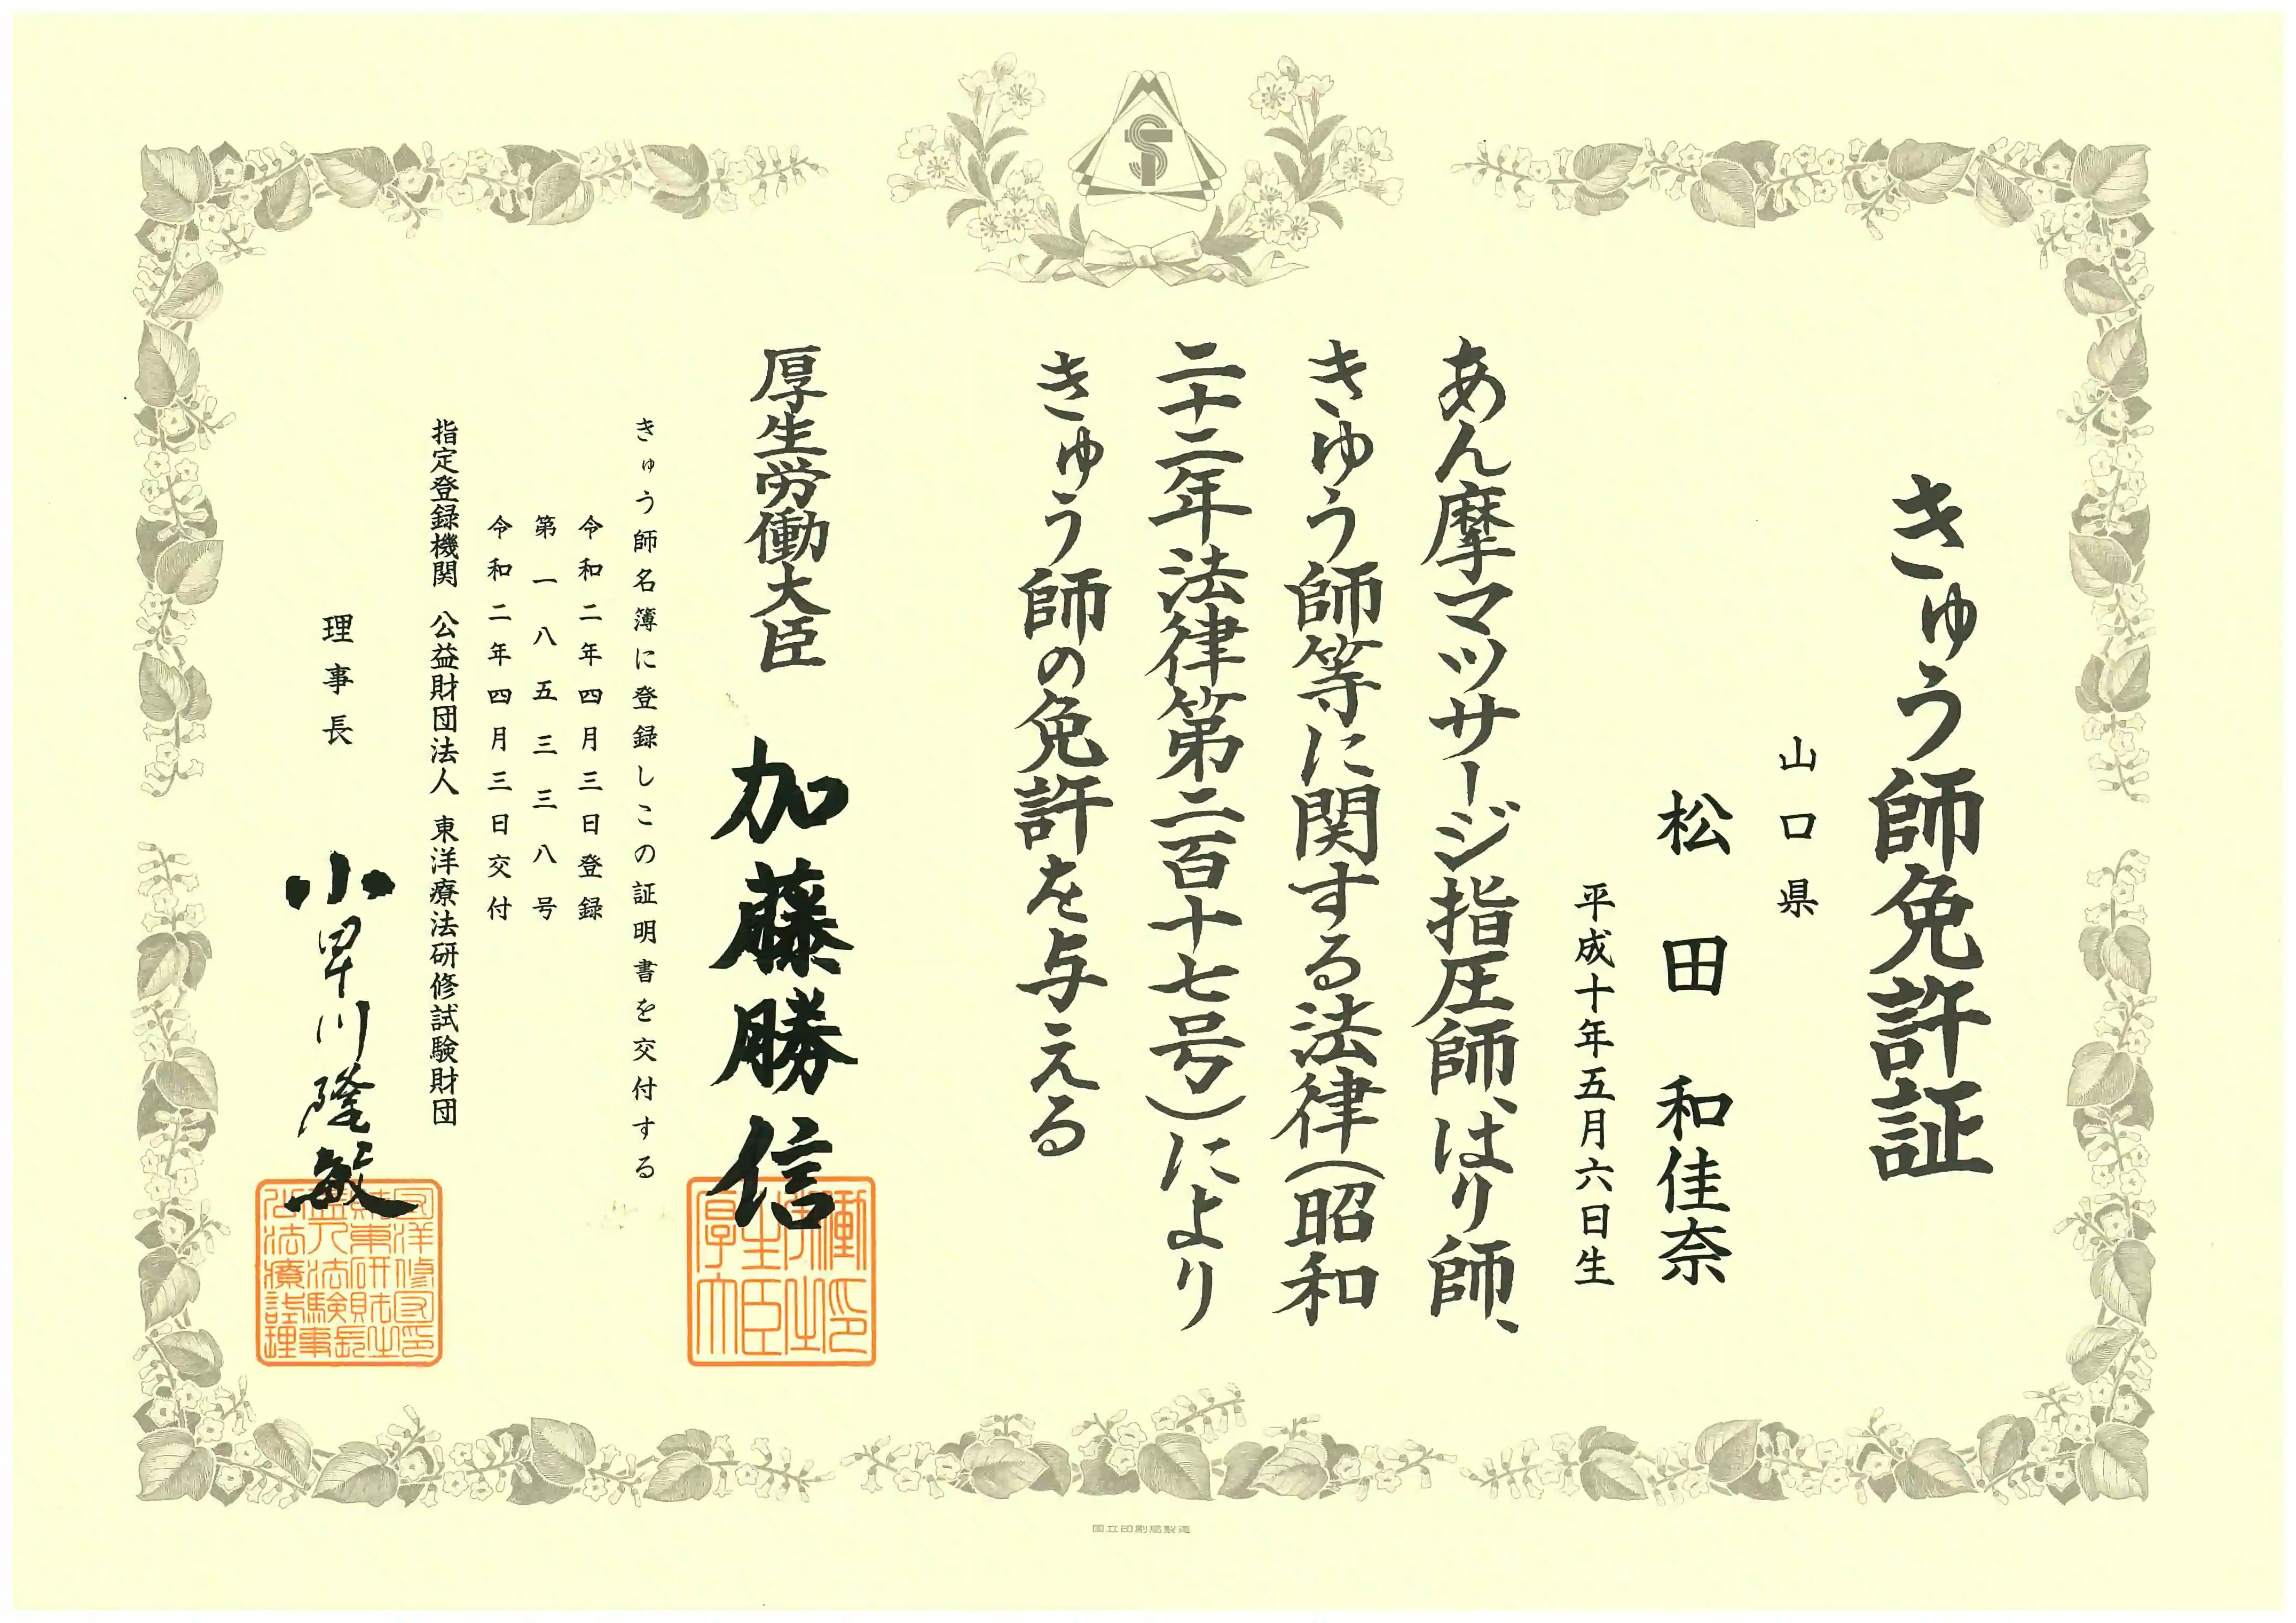 きゅう師免許証
山口県
松田和佳奈
平成十年五月六日生
あん摩マツサージ指圧師、はり師、
きゆう師等に関する法律(昭和
二十二年法律第二百十七号)により
きゅう師の免許を与える
厚生労働大臣 加藤勝信
きゅう師名簿に登録しこの証明書を交付する
令和二年四月三日登録
第一八五三三八号
令和二年四月三日交付
指定登録機関 公益財団法人 東洋療法研修試験財団
理事長 小早川隆敏
厚生労働大臣之印
国立印刷局製造